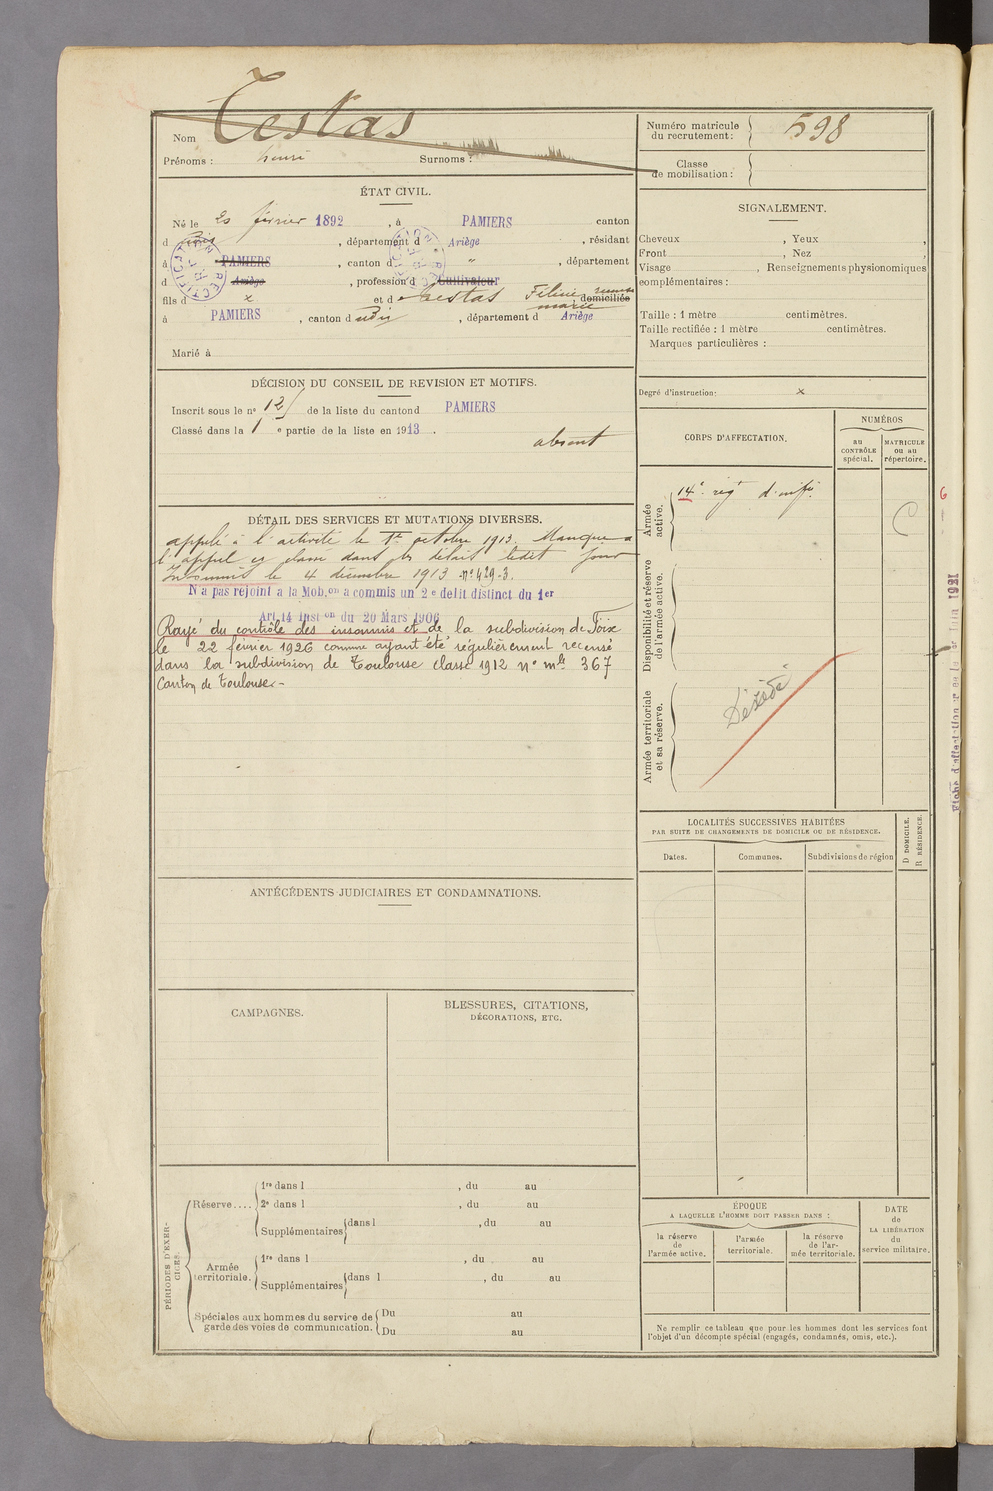 Nom Testas
Prénoms : henri Surnoms :
Numéro matricule du recrutement : 598
Classe de mobilisation :
ÉTAT CIVIL.
Né le 20 février 1892 , à PAMIERS canton
d , département d Ariège , résidant
à PAMIERS , canton d " , département
d Ariège , profession d Cultivateur
fils d x et d e Testas domiciliée
à PAMIERS , canton d udit , département d Ariège
Marié à
DÉCISION DU CONSEIL DE REVISION ET MOTIFS.
Inscrit sous le nº 12 de la liste du canton d PAMIERS
Classé dans la 1 e partie de la liste en 1913 .
absent
DÉTAIL DES SERVICES ET MUTATIONS DIVERSES.
appelé à l'activité le 1er octobre 1913. Manque à
l'appel et dans les délais ledit jour
Insoumis le 4 décembre 1913 nº 429-3.
N'a pas rejoint a la Mob.on a commis un 2e delit distinct du 1er
Art.14 Inston du 20 Mars 1906
Rayé du contrôle des insoumis et de la subdivision de Foix
le 22 février 1926 comme ayant été régulièrement recensé
dans la subdivision de Toulouse classe 1912 nº mle 367
Canton de Toulouse.-
ANTÉCÉDENTS JUDICIAIRES ET CONDAMNATIONS.
CAMPAGNES.
BLESSURES, CITATIONS,
DÉCORATIONS, ETC.
PÉRIODES D'EXERCICES.
Réserve....
1re dans l , du au
2e dans l , du au
Supplémentaires dans l , du au
Armée territoriale.
1re dans l , du au
Supplémentaires dans l , du au
Spéciales aux hommes du service de garde des voies de communication.
Du au
Du au
SIGNALEMENT.
Cheveux , Yeux ,
Front , Nez
Visage , Renseignements physionomiques
complémentaires :
Taille : 1 mètre centimètres.
Taille rectifiée : 1 mètre centimètres.
Marques particulières :
Degré d'instruction: x
CORPS D'AFFECTATION.
NUMÉROS
au CONTRÔLE spécial.
MATRICULE ou au répertoire.
Armée active.
14e rég t d'infie
6
Disponibilité et réserve de l'armée active.
Armée territoriale et sa réserve.
LOCALITÉS SUCCESSIVES HABITÉES
PAR SUITE DE CHANGEMENTS DE DOMICILE OU DE RÉSIDENCE.
Dates.
Communes.
Subdivisions de région
D DOMICILE.
R RÉSIDENCE.
ÉPOQUE
A LAQUELLE L'HOMME DOIT PASSER DANS :
la réserve de l'armée active.
l'armée territoriale.
la réserve de l'armée territoriale.
DATE
de
LA LIBÉRATION
du
service militaire.
Ne remplir ce tableau que pour les hommes dont les services font
l'objet d'un décompte spécial (engagés, condamnés, omis, etc.).